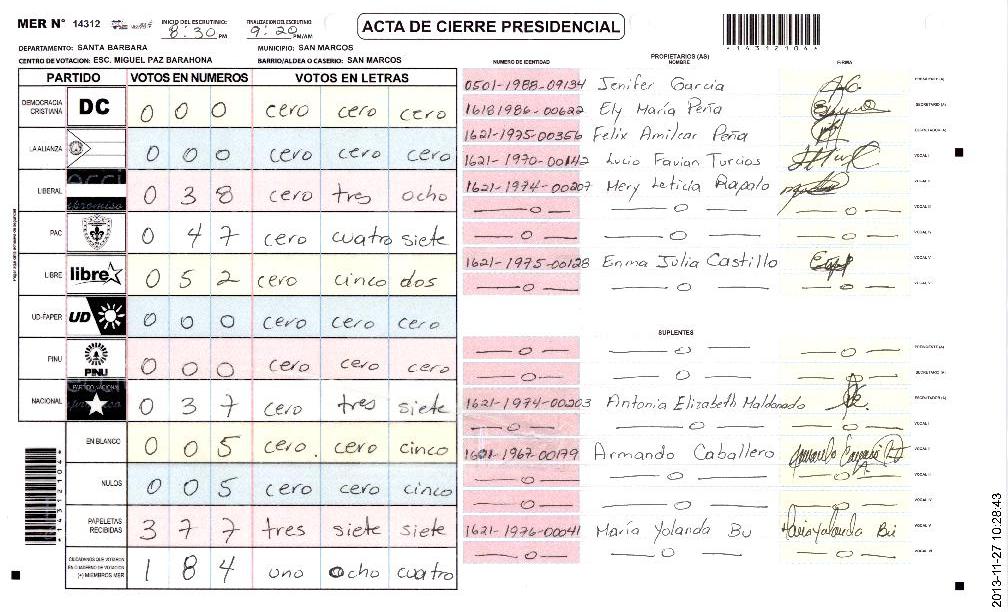 MER N° 14312
INICIO DEL ESCRUTINIO
8:30 PM
FINALIZACION DEL ESCRUTINIO
9:20 PM/AM
ACTA DE CIERRE PRESIDENCIAL
DEPARTAMENTO: SANTA BARBARA
MUNICIPIO: SAN MARCOS
CENTRO DE VOTACION: ESC. MIGUEL PAZ BARAHONA
BARRIO/ALDEA O CASERIO: SAN MARCOS
PARTIDO VOTOS EN NUMEROS VOTOS EN LETRAS
DEMOCRACIA CRISTIANA DC 0 0 0 cero cero cero
LA ALIANZA 0 0 0 cero cero cero
LIBERAL 0 3 8 cero tres ocho
PAC 0 4 7 cero cuatro siete
LIBRE libre 0 5 2 cero cinco dos
UD-FAPER UD 0 0 0 cero cero cero
PINU PINU 0 0 0 cero cero cero
NACIONAL PARTIDO NACIONAL 0 3 7 cero tres siete
EN BLANCO 0 0 5 cero cero cinco
NULOS 0 0 5 cero cero cinco
PAPELETAS RECIBIDAS 3 7 7 tres siete siete
CIUDADANOS QUE VOTARON EN CUADERNO DE VOTACION (+) MIEMBROS MER 1 8 4 uno ocho cuatro
PROPIETARIOS (AS)
NUMERO DE IDENTIDAD NOMBRE FIRMA
0501-1988-09134 Jenifer Garcia PRESIDENTE (A)
1618 1986-00622 Ely María Peña SECRETARIO (A)
1621-1975-00356 Felix Amilcar Peña ESCRUTADOR (A)
1621-1970-00142 Lucio Favian Turcios VOCAL I
1621-1974-00207 Mery Leticia Rapalo VOCAL II
VOCAL III
VOCAL IV
1621-1975-00128 Enma Julia Castillo VOCAL V
VOCAL VI
SUPLENTES
PRESIDENTE (A)
SECRETARIO (A)
1621-1974-00203 Antonia Elizabeth Maldonado ESCRUTADOR (A)
VOCAL I
1621-1967-00179 Armando Caballero VOCAL II
VOCAL IV
1621-1976-00041 María Yolanda Bu María Yolanda Bu VOCAL V
VOCAL VI
1 4 3 1 2 1 0 4
2013-11-27 10:28:43